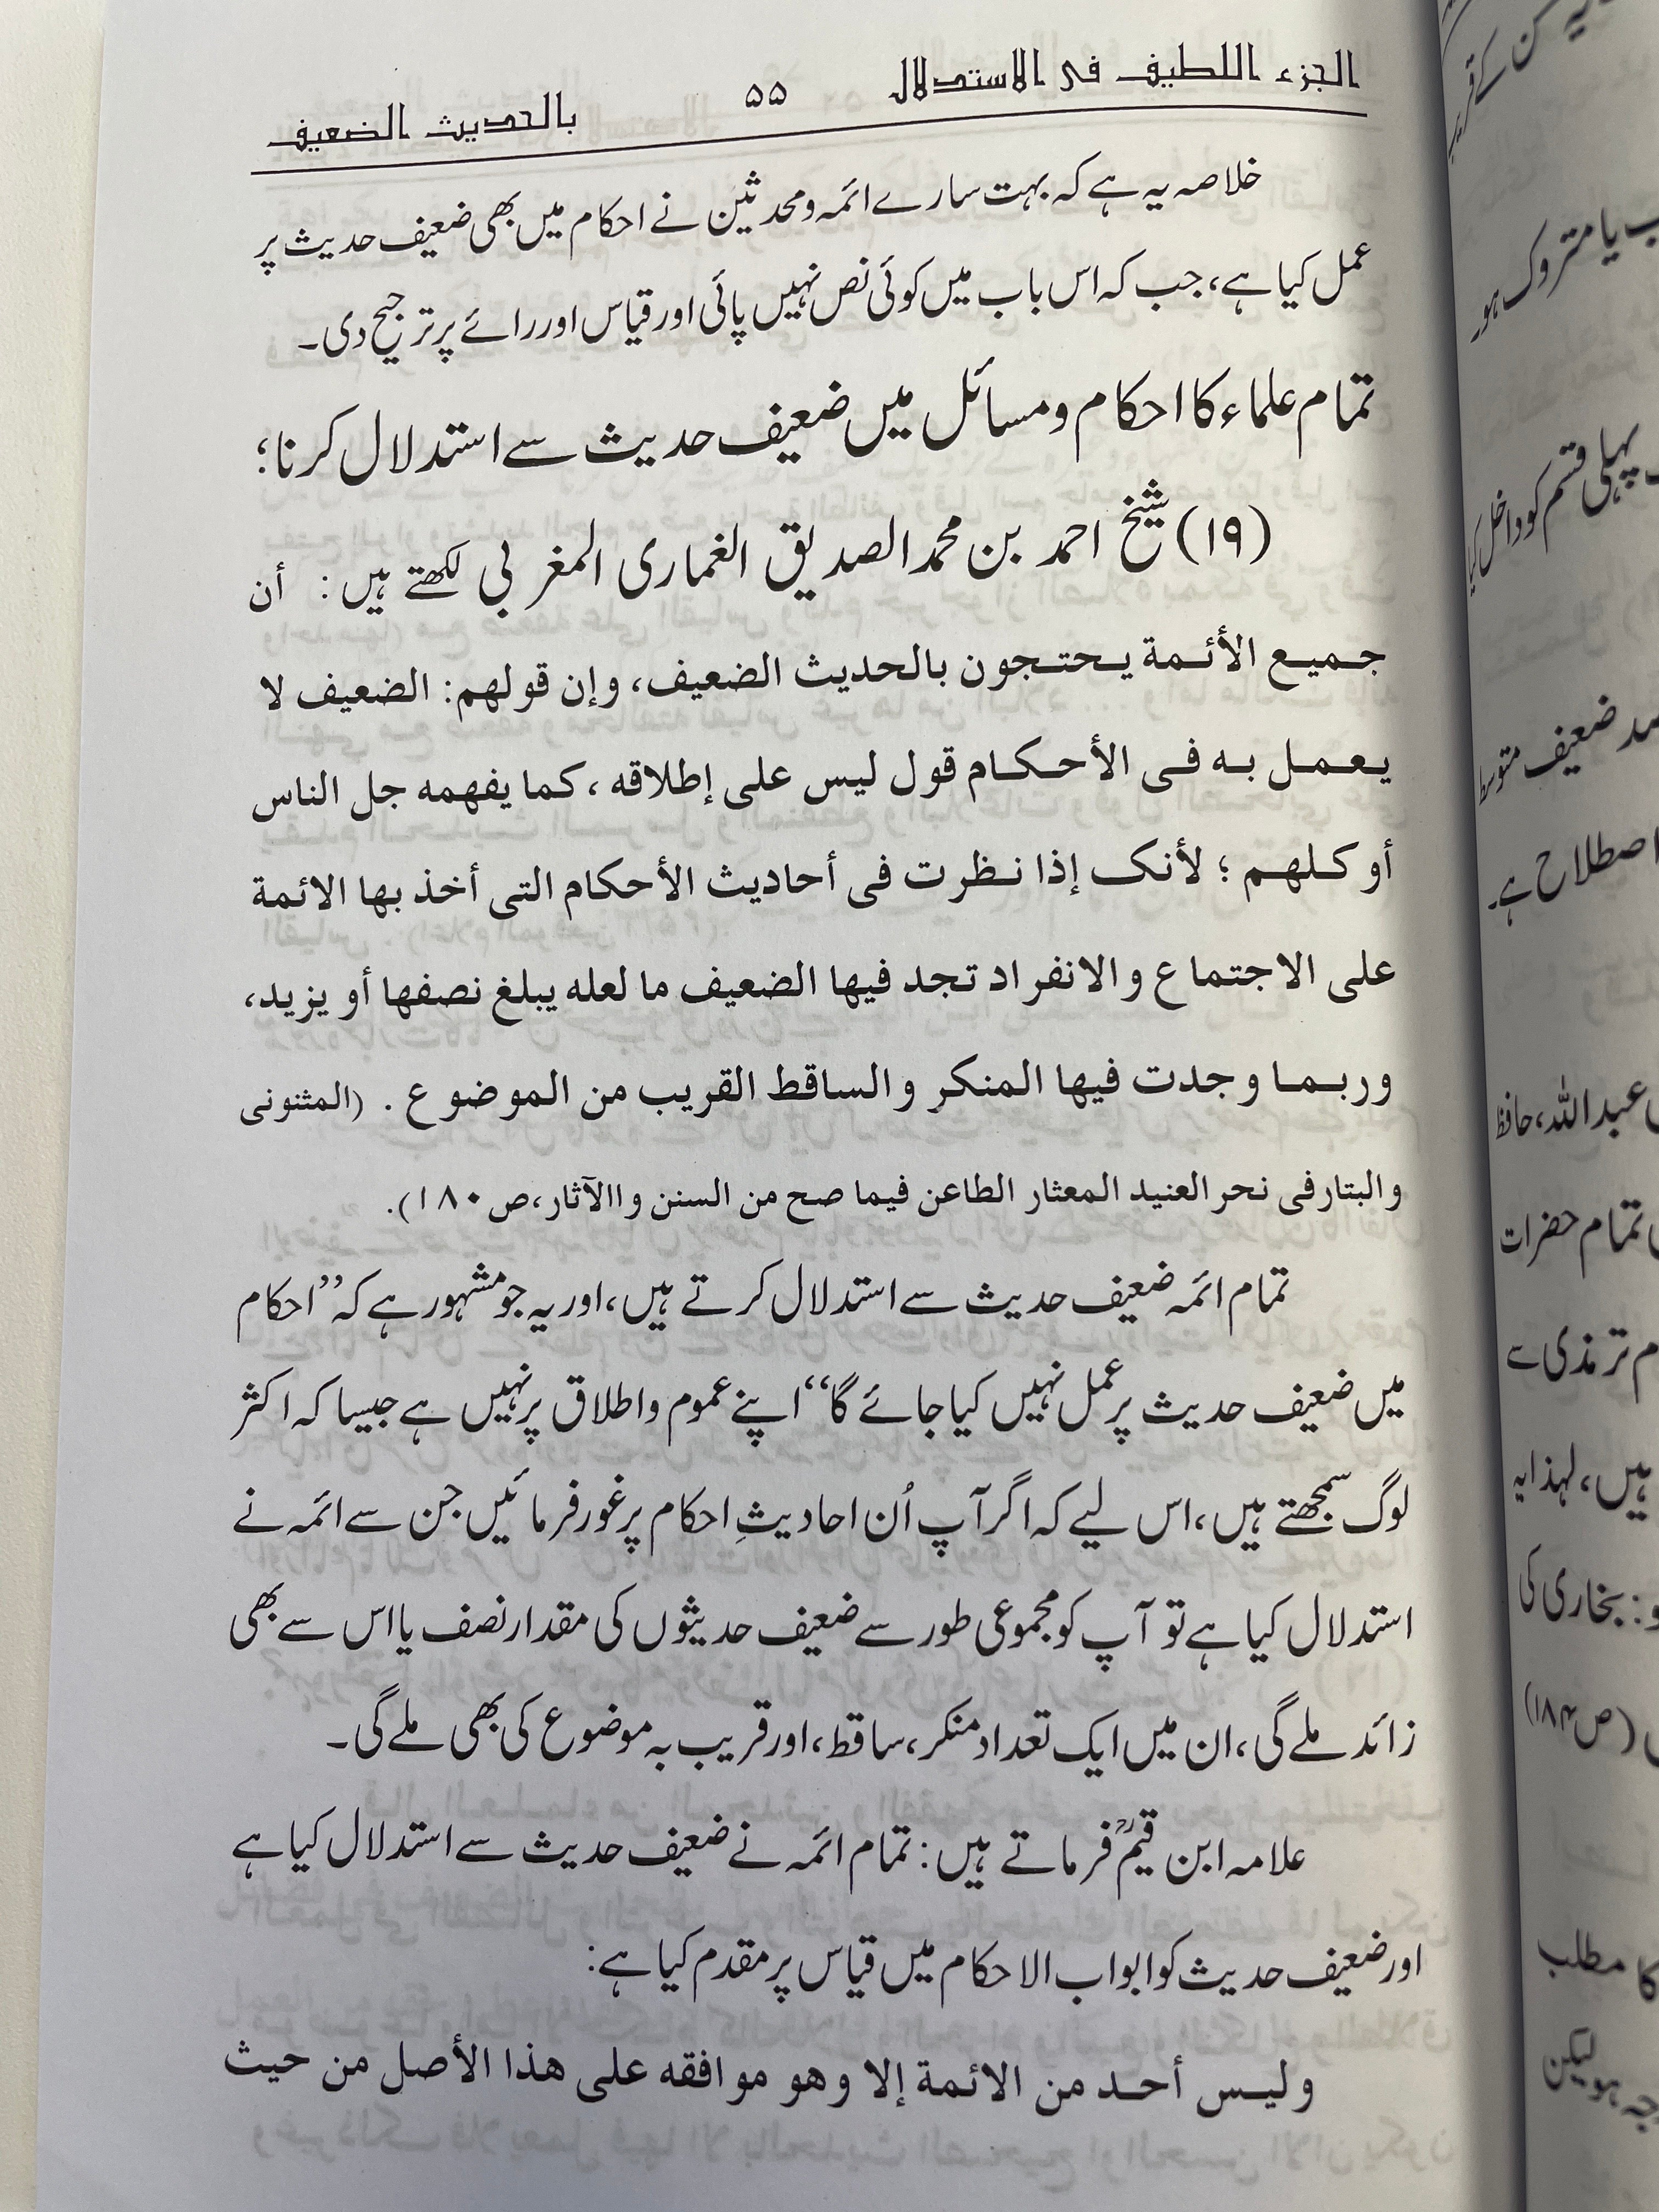 الجزء اللطيف فى الاستدلال ۵۵ بالحديث الضعيف
خلاصہ یہ ہے کہ بہت سارے ائمہ ومحدثین نے احکام میں بھی ضعیف حدیث پر
عمل کیا ہے، جب کہ اس باب میں کوئی نص نہیں پائی اور قیاس اور رائے پر ترجیح دی۔
تمام علماء کا احکام ومسائل میں ضعیف حدیث سے استدلال کرنا؛
(۱۹) شیخ احمد بن محمد الصدیق الغماری المغربی لکھتے ہیں: أن
جميع الأئمة يحتجون بالحديث الضعيف، وإن قولهم: الضعيف لا
يعمل به فى الأحكام قول ليس على إطلاقه ، كما يفهمه جل الناس
أو كلهم ؛ لأنک إذا نظرت فى أحاديث الأحكام التى أخذ بها الائمة
على الاجتماع والانفراد تجد فيها الضعيف ما لعله يبلغ نصفها أو يزيد،
وربما وجدت فيها المنكر والساقط القريب من الموضوع . (المثنونى
والبتار فى نحر العنيد المعثار الطاعن فيما صح من السنن واالآثار،ص ۱۸۰).
تمام ائمہ ضعیف حدیث سے استدلال کرتے ہیں، اور یہ جو مشہور ہے کہ ”احکام
میں ضعیف حدیث پر عمل نہیں کیا جائے گا“ اپنے عموم واطلاق پر نہیں ہے جیسا کہ اکثر
لوگ سمجھتے ہیں، اس لیے کہ اگر آپ اُن احادیثِ احکام پر غور فرمائیں جن سے ائمہ نے
استدلال کیا ہے تو آپ کو مجموعی طور سے ضعیف حدیثوں کی مقدار نصف یا اس سے بھی
زائد ملے گی، ان میں ایک تعداد منکر، ساقط، اور قریب بہ موضوع کی بھی ملے گی۔
علامہ ابن قیمؒ فرماتے ہیں: تمام ائمہ نے ضعیف حدیث سے استدلال کیا ہے
اور ضعیف حدیث کو ابواب الاحکام میں قیاس پر مقدم کیا ہے:
وليس أحد من الائمة إلا وهو موافقه على هذا الأصل من حيث
یا متروک ہو۔
پہلی قسم کو داخل کیا
ضعیف متوسط
اصطلاح ہے۔
عبداللہ، حافظ
تمام حضرات
ترمذی سے
ہیں، لہذا یہ
: بخاری کی
(ص۱۸۴)
کا مطلب
ہو لیکن